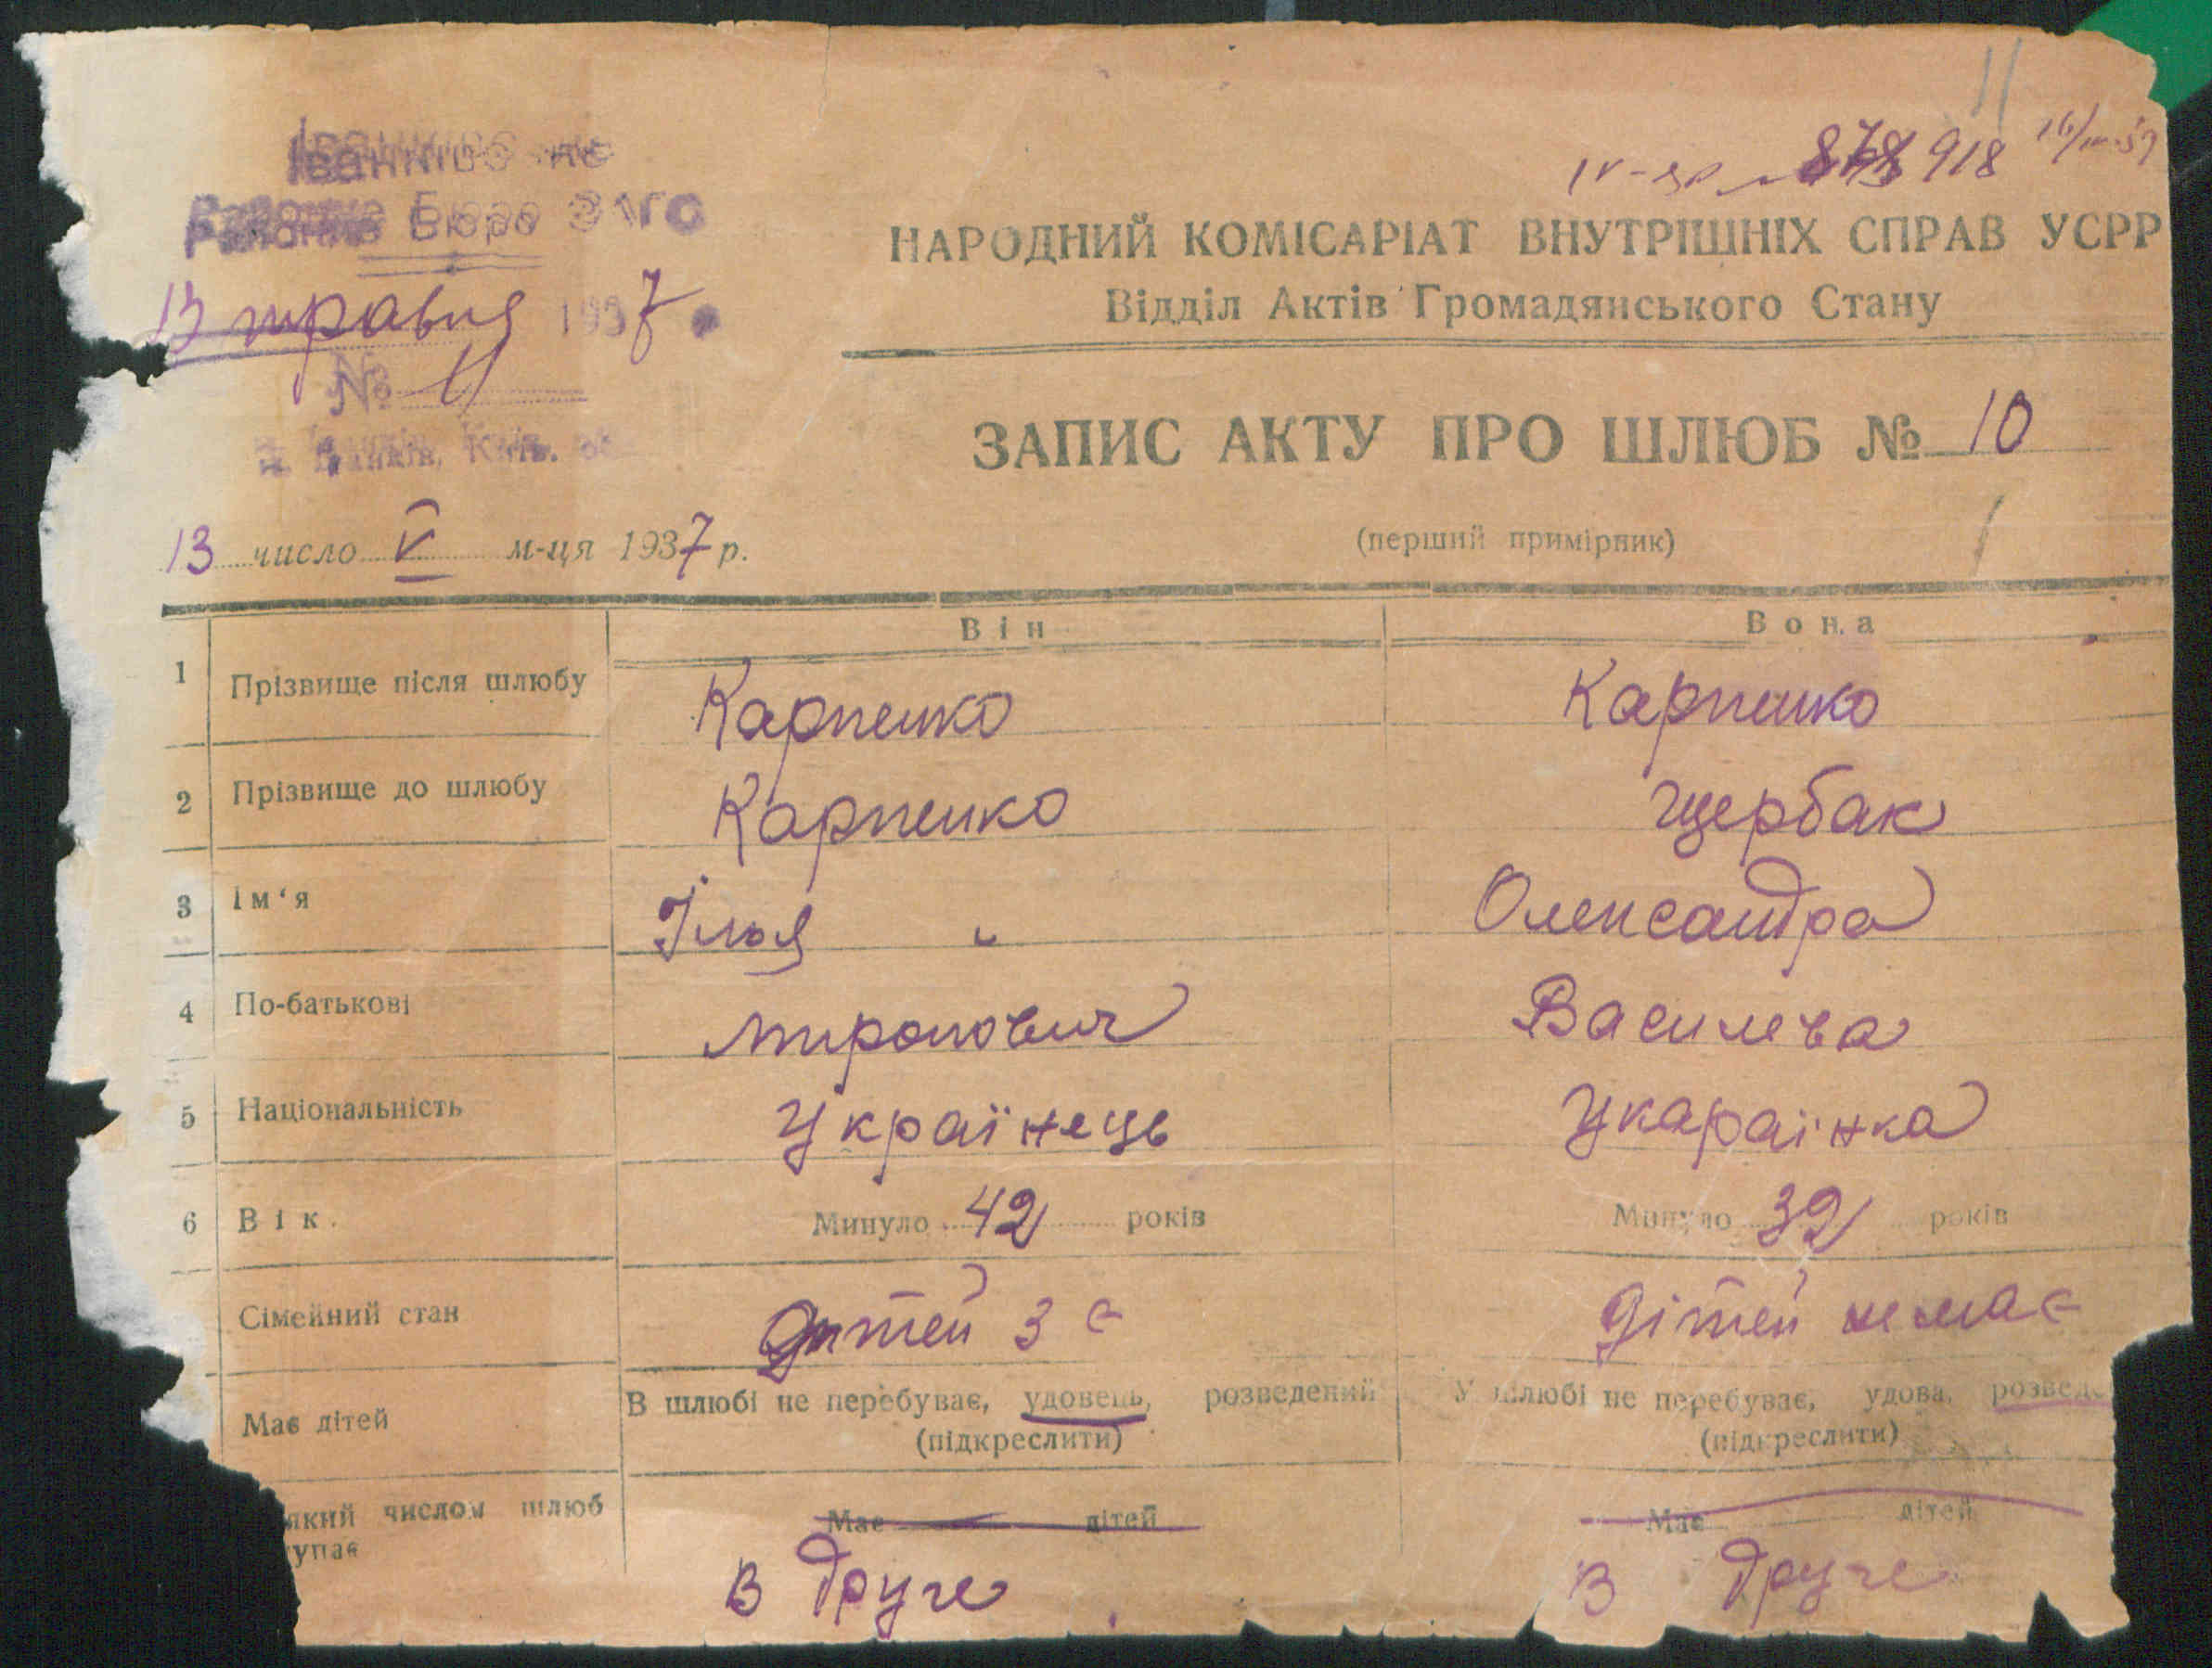 11
878 918
Районне Бюро ЗАГС
13 травня 1937
№ 11
НАРОДНИЙ КОМІСАРІАТ ВНУТРІШНІХ СПРАВ УСРР
Відділ Актів Громадянського Стану
ЗАПИС АКТУ ПРО ШЛЮБ № 10
(перший примірник)
13 число V м-ця 1937 р.
Він Вона
1 Прізвище після шлюбу Карпенко Карпенко
2 Прізвище до шлюбу Карпенко Щербак
3 Ім‘я Ілья Олександра
4 По-батькові Миронович Василева
5 Національність Українець Украраінка
6 Вік. Минуло 42 років Минуло 32 років
Сімейний стан дітей 3 є дітей немає
Має дітей В шлюбі не перебуває, удовець, розведений У шлюбі не перебуває, удова, розведе
(підкреслити) (підкреслити)
який числом шлюб Має дітей Має дітей
упає В друге В друге